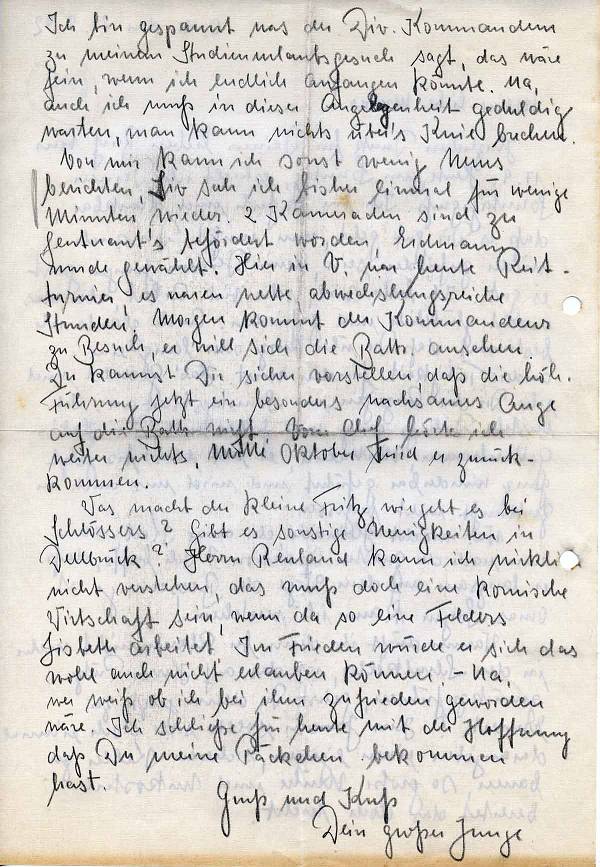 Ich bin gespannt was der Div. Kommandeur
zu meinem Studienurlaubsgesuch sagt, das wäre
fein, wenn ich endlich anfangen könnte. Na,
auch ich muß in dieser Angelegenheit geduldig
warten, man kann nichts über's Knie brechen.
Von mir kann ich sonst wenig Neues
berichten, sah ich bisher einmal für wenige
Minuten wieder. 2 Kameraden sind zu
Leutnant's befördert worden, Erdmann
wurde gewählt. Hier in V. war heute Reit-
turnier, es waren nette abwechslungsreiche
Stunden. Morgen kommt der Kommandeur
zu Besuch, er will sich die Battr. ansehen.
Du kannst Dir sicher vorstellen, daß die höh.
Führung jetzt ein besonders wachsames Auge
auf die Battr. wirft. Vom Chef hörte ich
weiter nichts, Mitte Oktober wird er zurück-
kommen.
Was macht der kleine Fritz, wie geht es bei
Schlössers? Gibt es sonstige Neuigkeiten in
Dellbrück? Herrn Renland kann ich wirklich
nicht verstehen, das muß doch eine komische
Wirtschaft sein, wenn da so eine Felders
Lisbeth arbeitet. Im Frieden würde er sich das
wohl auch nicht erlauben können. - Na,
wer weiß ob ich bei ihm zufrieden geworden
wäre. Ich schließe für heute mit der Hoffnung
daß Du meine Päckchen bekommen
hast.
Gruß und Kuß
Dein großer Junge